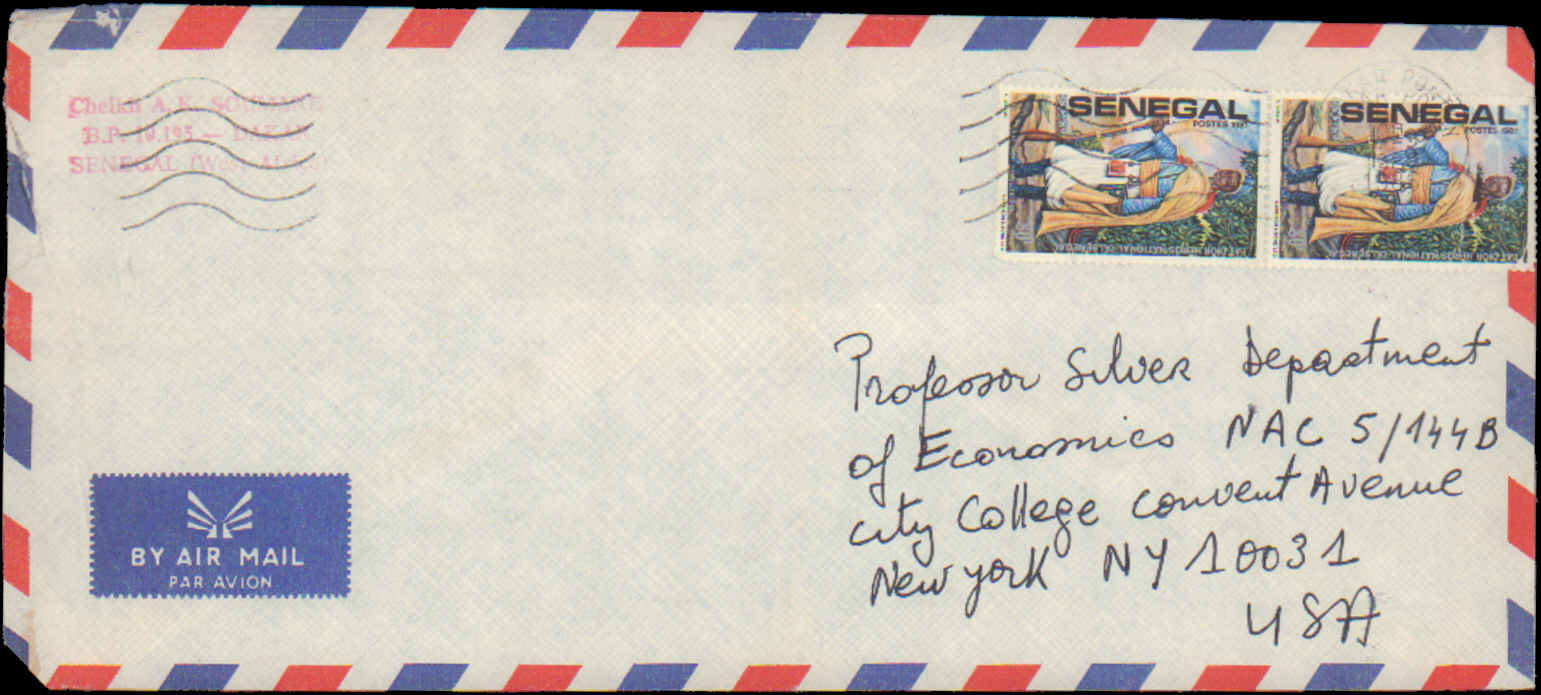 Cheikh A. K. SOUMARE
B.P. 10.195 — DAKAR
SENEGAL (West Africa)
SENEGAL
POSTES 1981
SENEGAL
POSTES 1981
Professor Silver Department
of Economics NAC 5/144B
City College convent Avenue
New york NY 10031
USA
BY AIR MAIL
PAR AVION